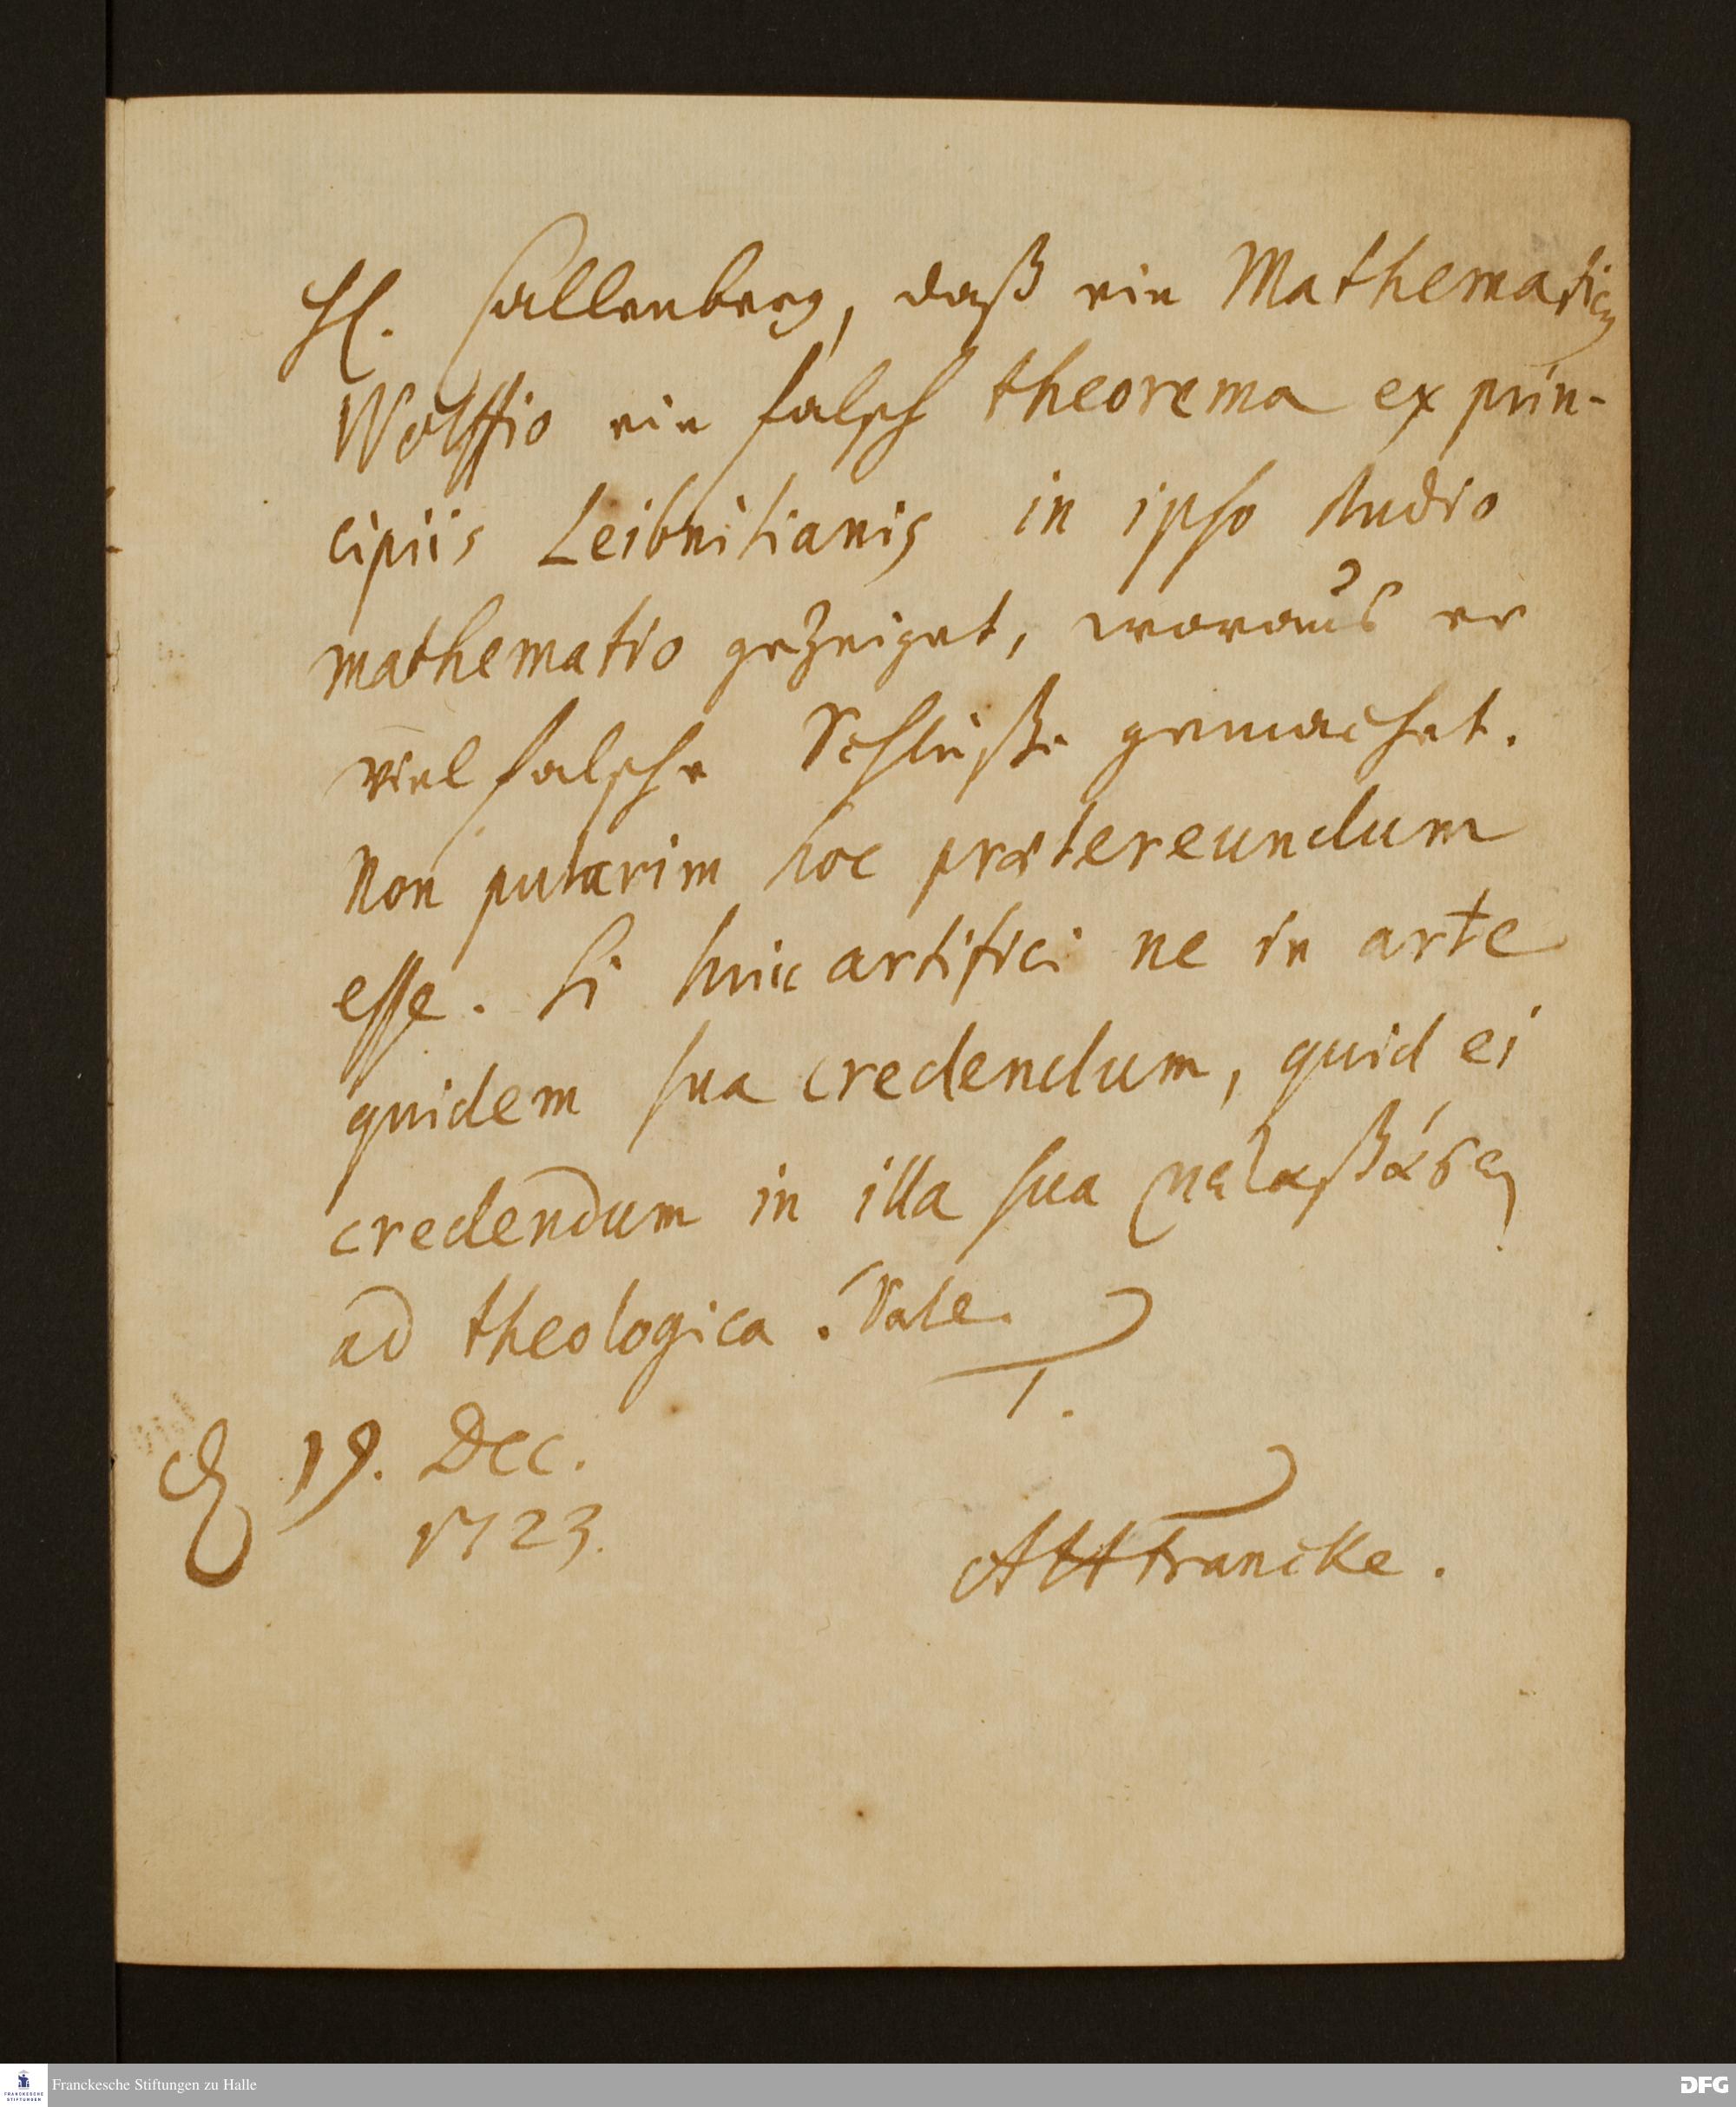 H. Callenberg, daß ein Mathematicus
Wolffio ein falsch theorema ex prin-
cipiis Leibnitianis in ipso studio
mathematico gezeiget, woraus er
viel falsche Schlüße gemachet.
Non putarim hoc prætereundum
esse. Si huic artifici ne in arte
quidem sua credendum, quid ei
credendum in illa sua μεταβάσει
ad theologica. Vale.
T.
d 19. Dec.
1723.
AHFrancke.
Franckesche Stiftungen zu Halle
FRANCKESCHE
STIFTUNGEN
DFG